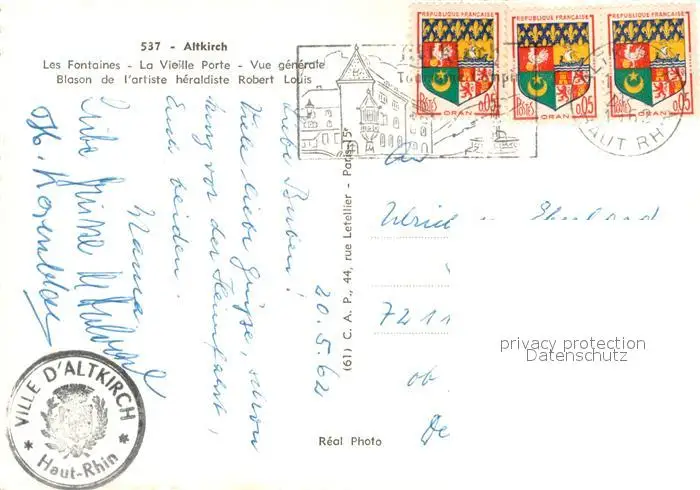 537 - Altkirch
Les Fontaines - La Vieille Porte - Vue générale
Blason de l'artiste héraldiste Robert Louis
REPUBLIQUE FRANÇAISE
POSTES 0,05
ORAN
REPUBLIQUE FRANÇAISE
POSTES 0,05
ORAN
REPUBLIQUE FRANÇAISE
POSTES 0,05
ORAN
HAUT RH
20.5.62
Liebe Buben!
Viele liebe Grüsse, schon
kurz vor der Heimfahrt,
Euch beiden.
Mama
(61) C. A. P., 44, rue Letellier - Paris-15e
An
Ulrich
7211
ob
De
privacy protection
Datenschutz
VILLE D'ALTKIRCH
Haut-Rhin
Réal Photo